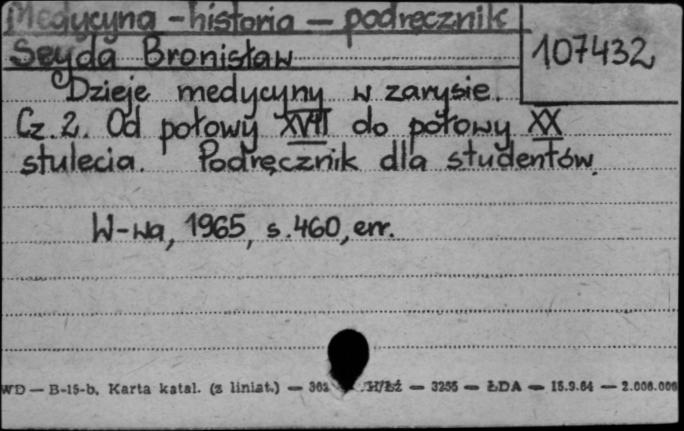 Medycyna - historia - podręcznik
107432
Seyda Bronisław
Dzieje medycyny w zarysie.
Cz. 2. Od połowy XVII do połowy XX
stulecia. Podręcznik dla studentów.
W-wa, 1965, s. 460, err.
WD — B-15-b. Karta katal. (z liniat.) — H/Łź — 3255 — ŁDA — 15.9.64 — 2.000.000